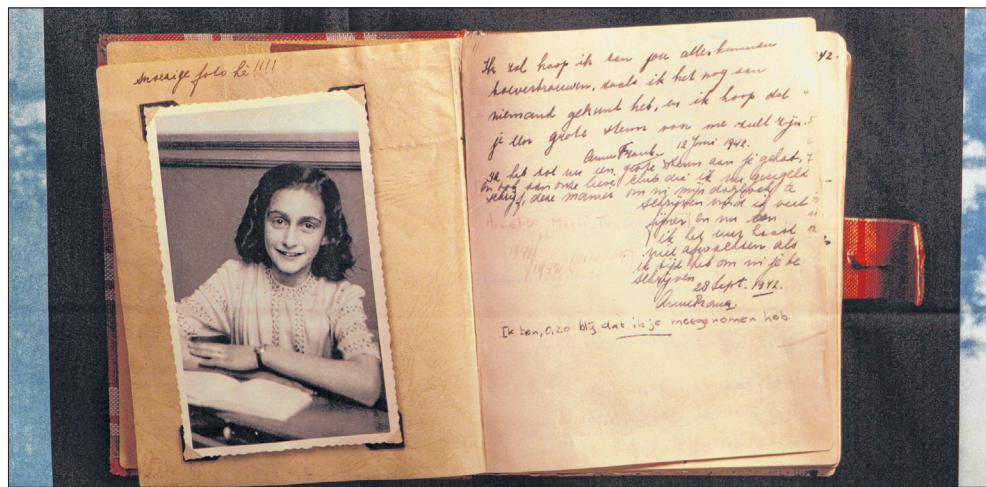 snoezige foto hè!!!!
Ik zal hoop ik aan jou alles kunnen
toevertrouwen, zoals ik het nog aan
niemand gekund heb, en ik hoop dat
je een grote steun van me zult zijn.
Anne Frank. 12 Juni 1942.
Ik heb tot nu een grote steun aan je gehad,
en ook aan onze lieve club die ik nu geregeld
schrijf, deze manier om in mijn dagboek te
schrijven vind ik veel
fijner en nu kan
ik het uur haast
niet afwachten als
ik tijd heb om in je te
schrijven
28 Sept. 1942.
Anne Frank.
Ik ben, O, zo blij dat ik je meegenomen heb.
42.